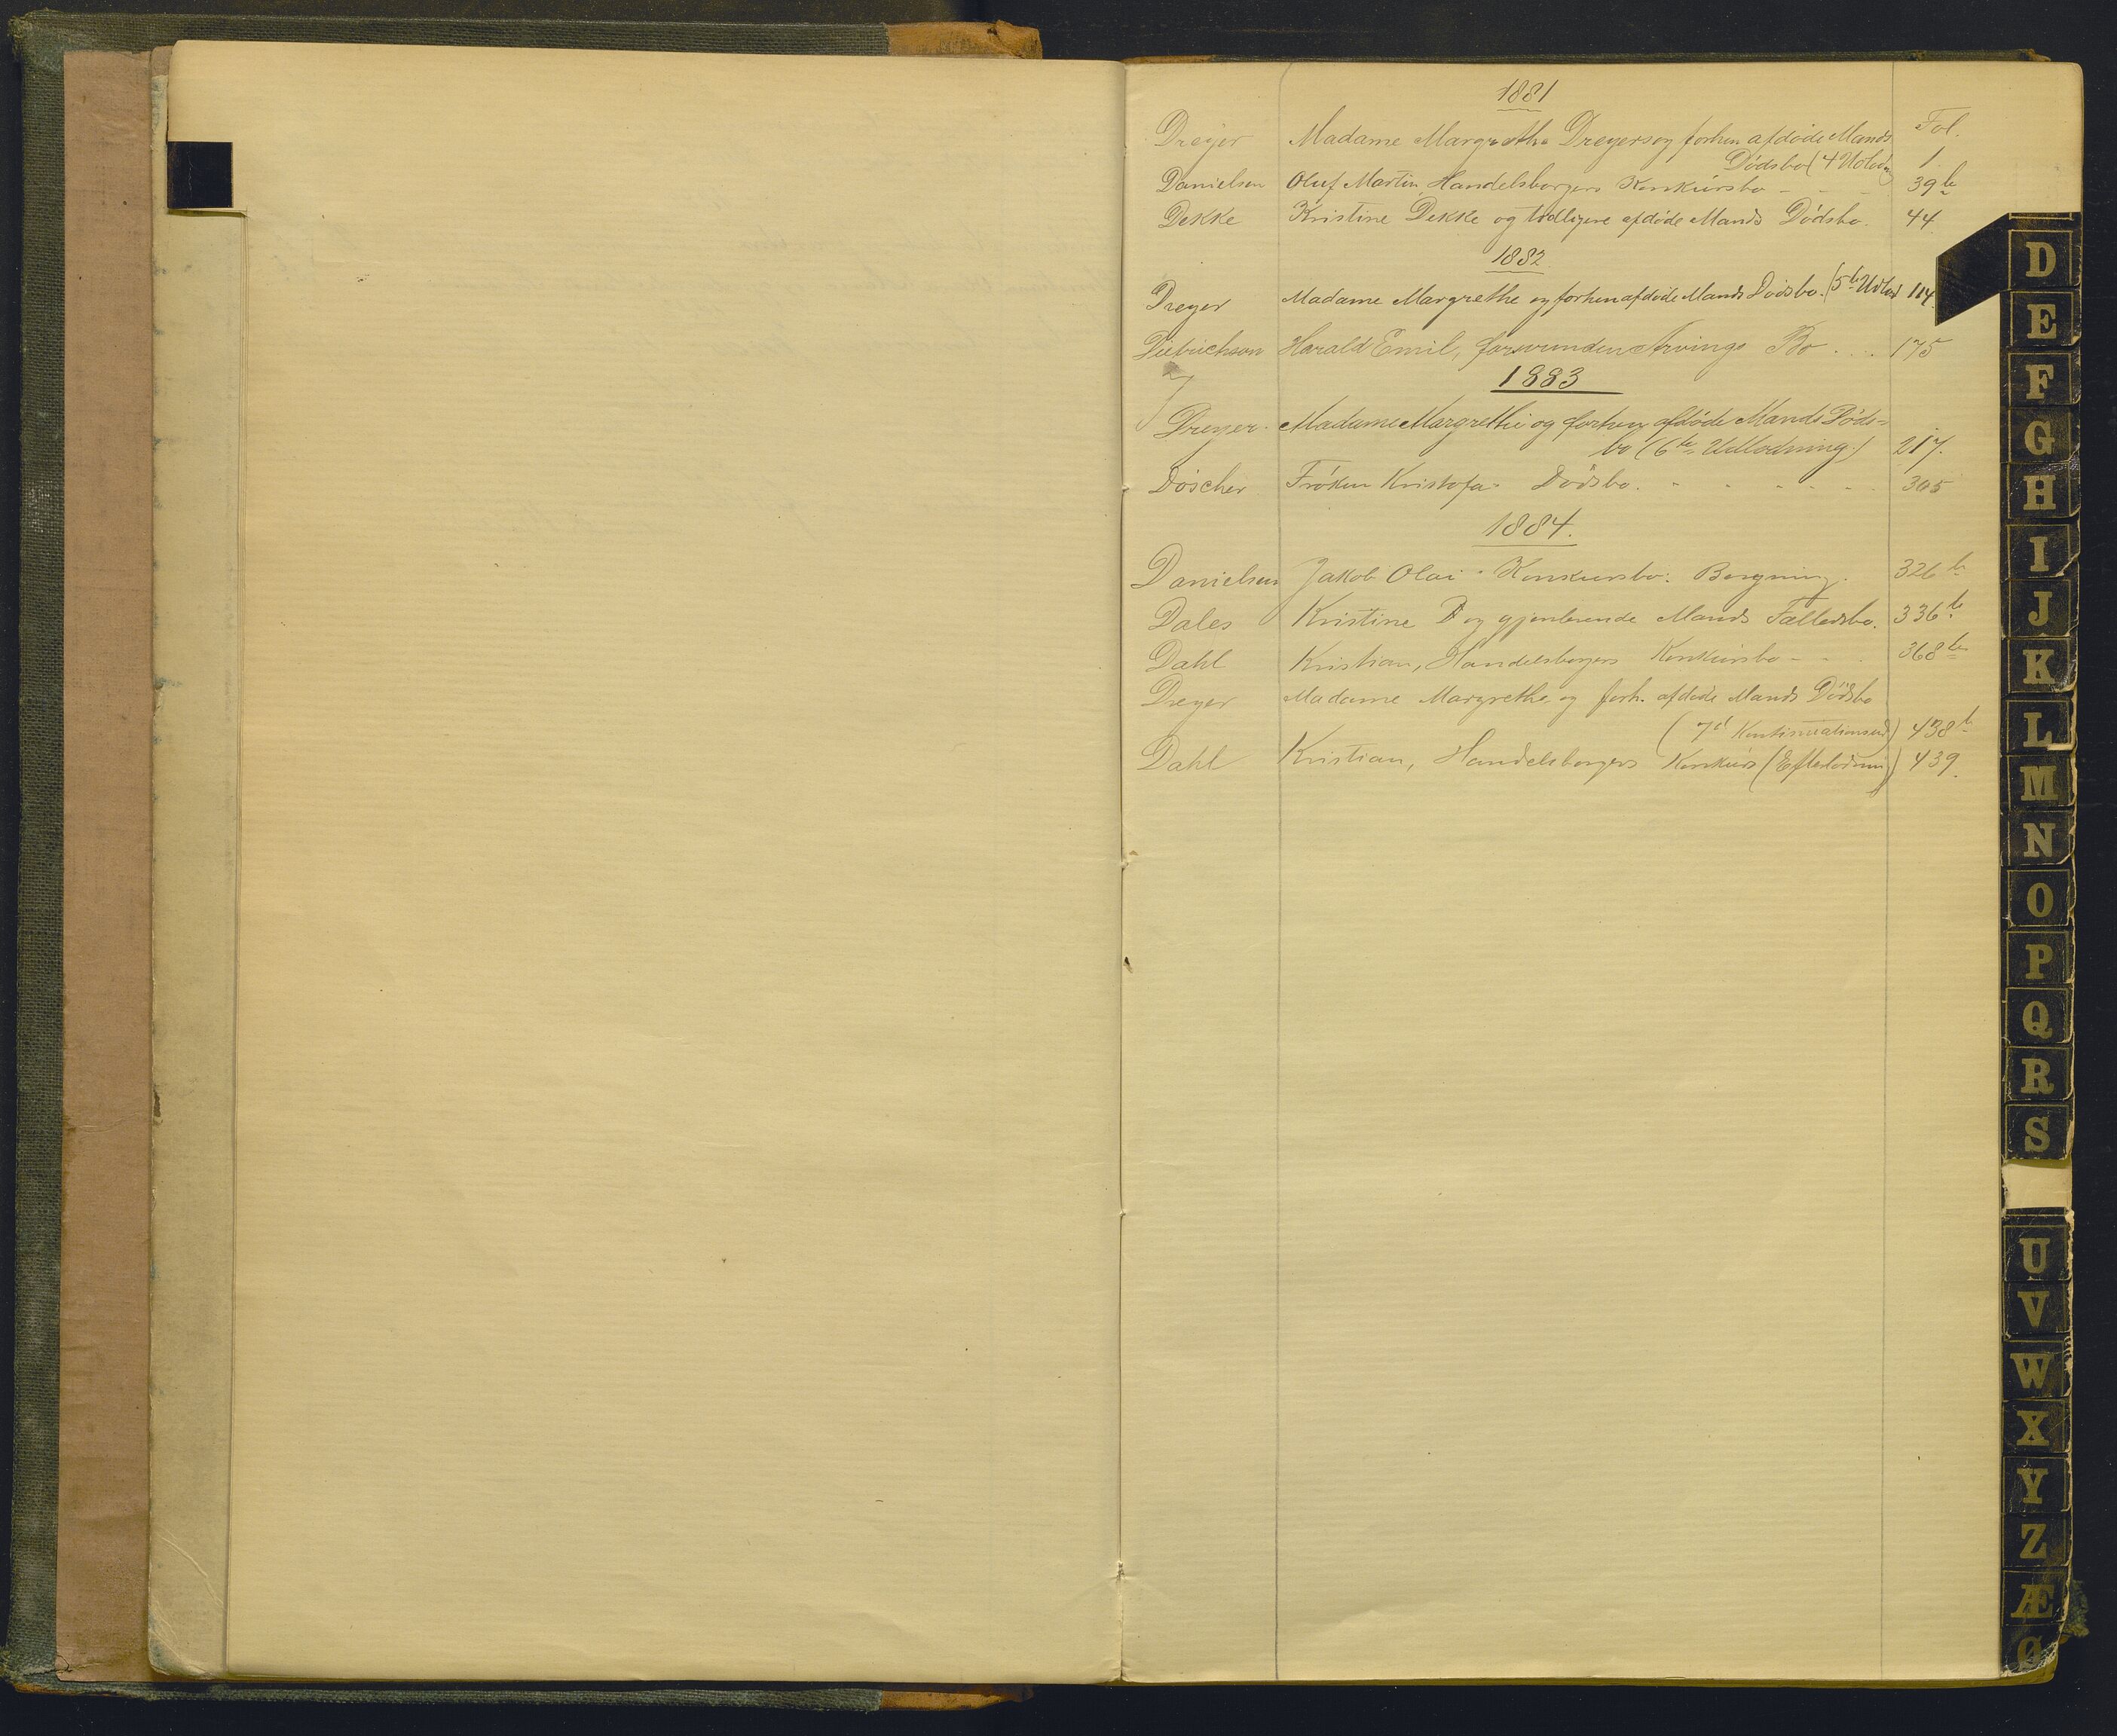 1881
Fol.
Dreyer Madame Margrethe Dreyers og forhen afdöde Mands
Dödsbo (4 Udlodn) 1
Danielsen Oluf Martin, Handelsborgers Konkursbo - - - 39b
Dekke Kristine Dekke og tidligere afdöde Mands Dödsbo. 44.
1882
Dreyer Madame Margrethe og forhen afdöde Mands Dödsbo. (5te Udlod 114.
Dietrichson Harald Emil, forsvunden Arvings Bo . . . 175
1883
Dreyer. Madame Margrethe og forhen afdöde Mands Döds=
bo (6te Udlodning.) 217.
Döscher Fröken Kristofa Dödsbo. - - - - - 305
1884.
Danielsen Jakob Olai Konkursbo: 326b
Dales Kristine D og gjenlevende Mands Fælledsbo. 336b.
Dahl Kristian, Handelsborgers Konkursbo - - - 368b
Dreyer Madame Margrethe og forh. afdöde Mands Dödsbo
(7d) 438b
Dahl Kristian, Handelsborgers Konkurs (Efterlodning) 439.
D
E
F
G
H
I
J
K
L
M
N
O
P
Q
R
S
U
V
W
X
Y
Z
Æ
Ø